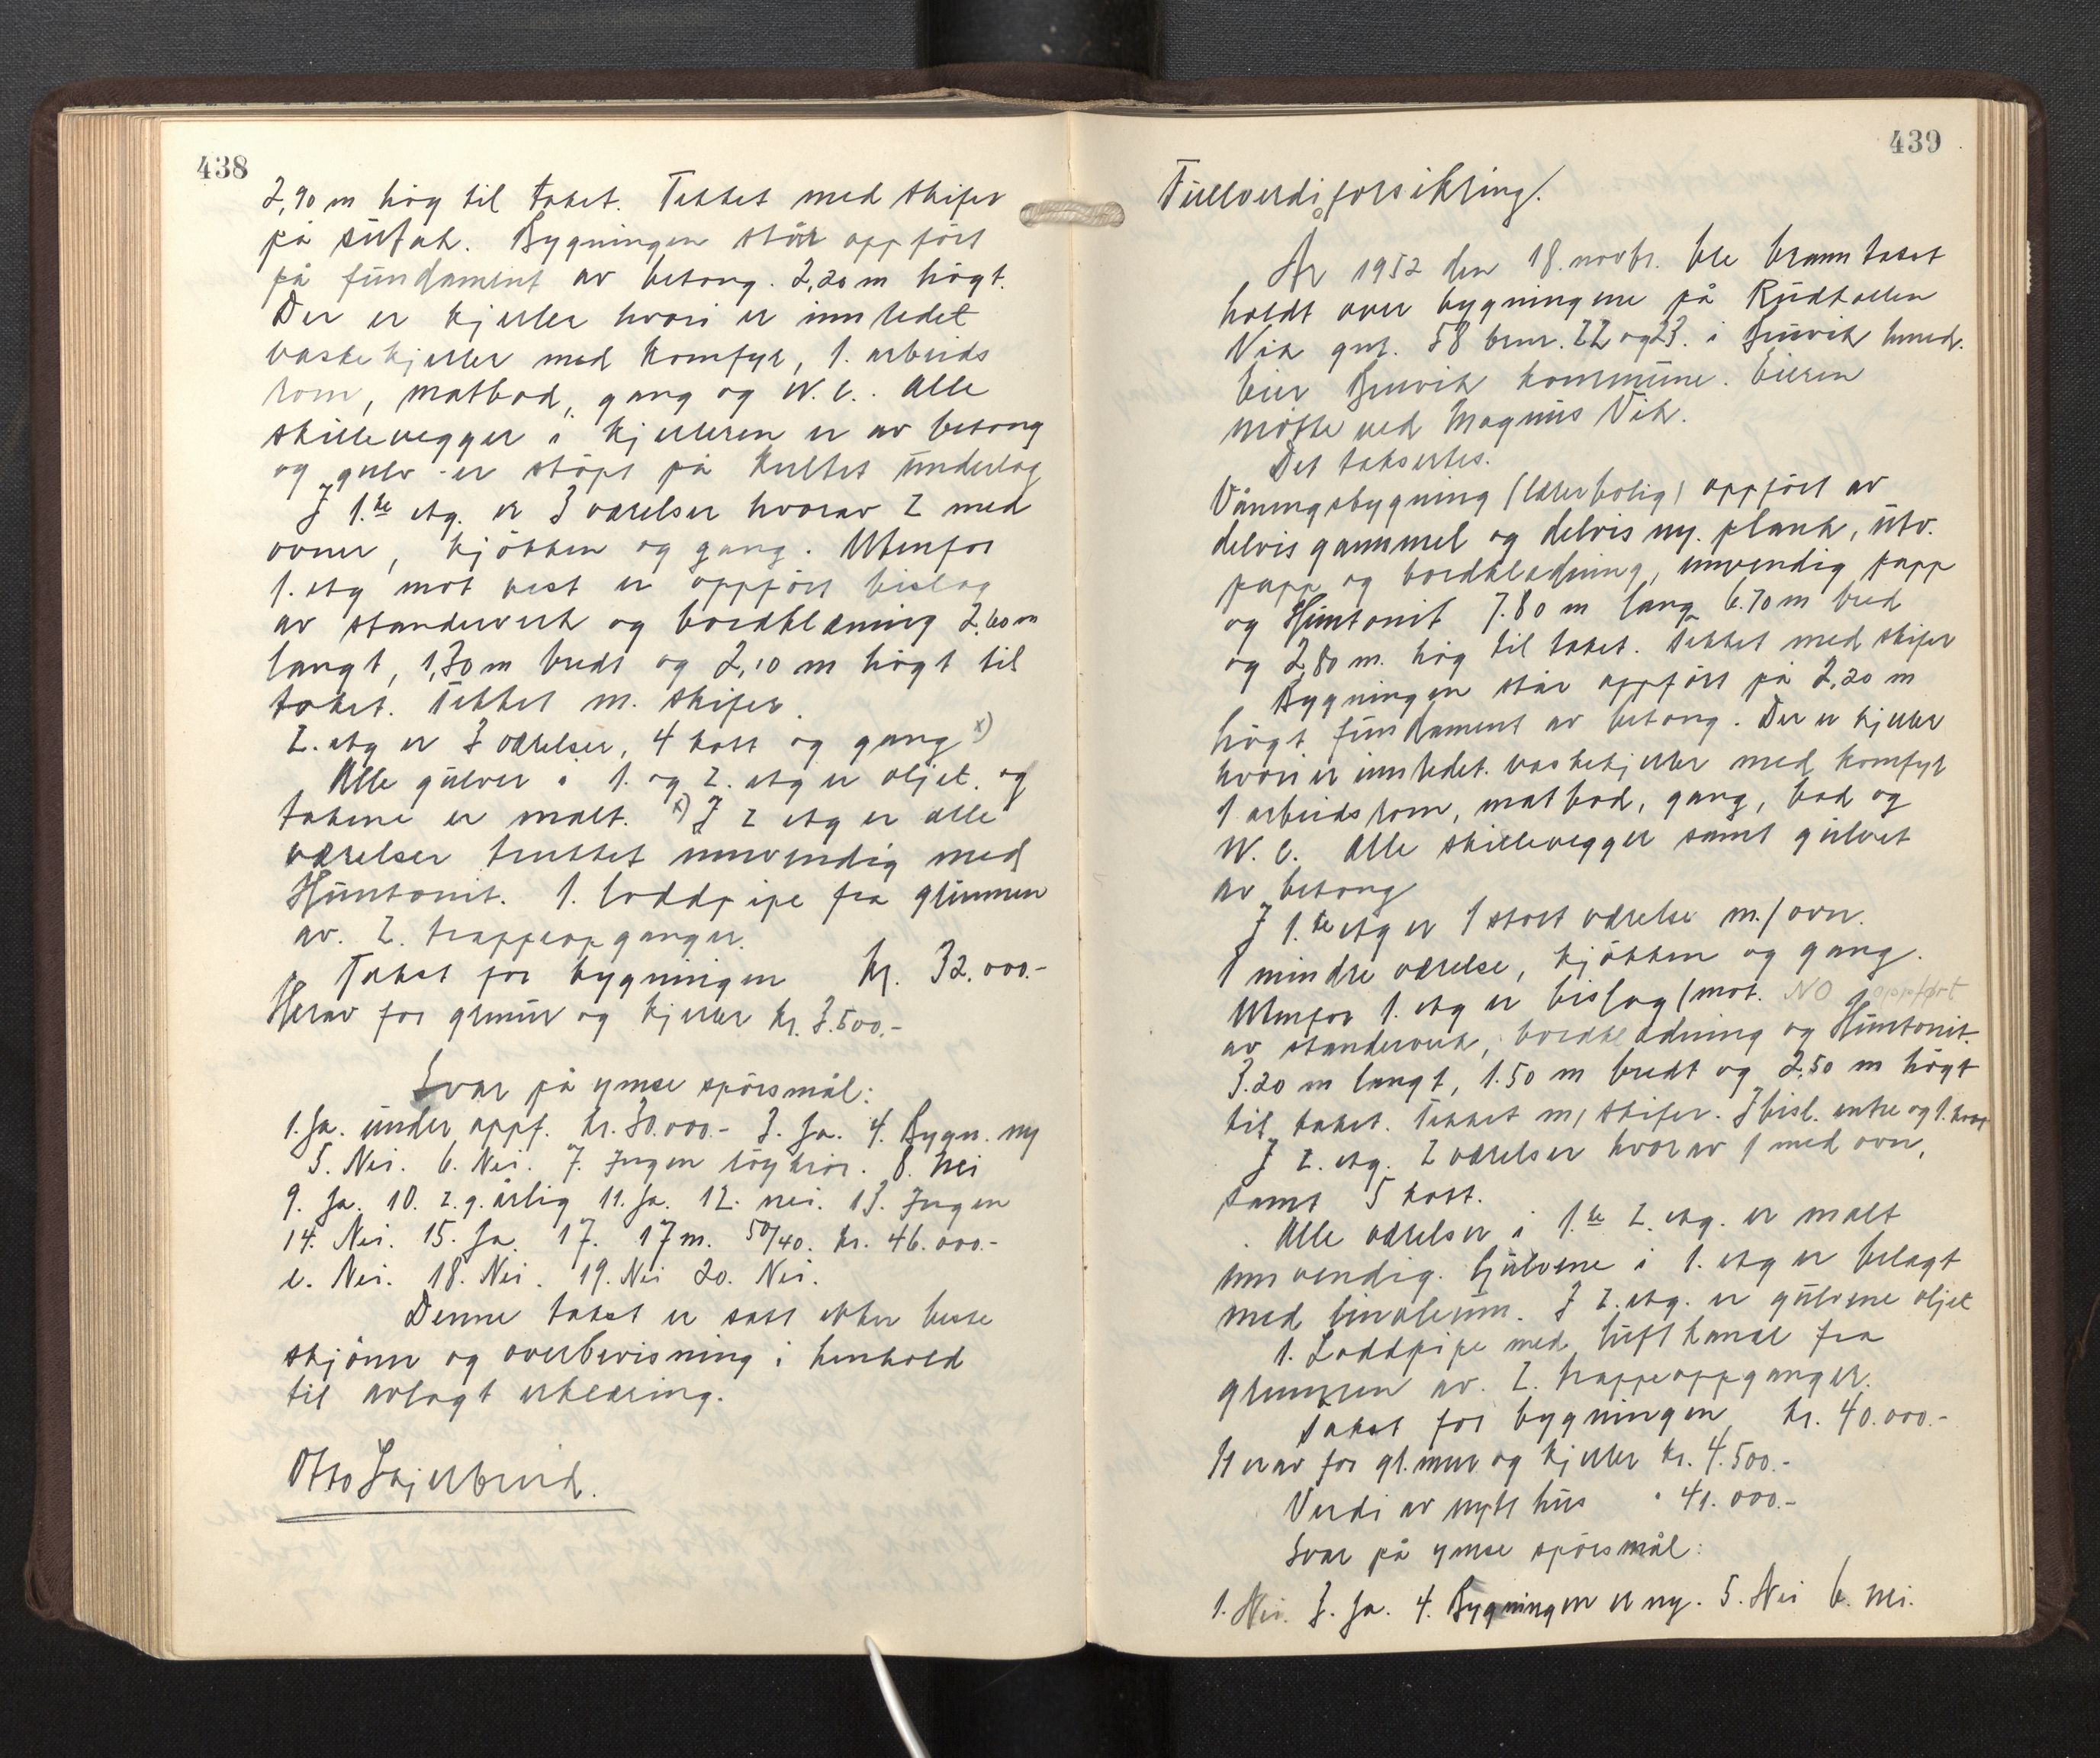 438
2,90 m høg til taket. Tekket med skifer
på sutak. Bygningen står oppført
på fundament av betong. 2,20 m høgt.
Der er kjeller hvori er innredet
vaskekjeller med komfyr, 1. arbeids
rom, matbod, gang og W.C. Alle
skillevegger i kjelleren er av betong
og gulv er støpt på kultet underlag
I 1.ste etg. er 3 værelser hvorav 2 med
ovner, kjøkken og gang. Utenfor
1. etg mot vest er oppført bislag
av standerverk og bordklædning 2,60 m
langt, 1,30 m bredt og 2,10 m høgt til
taket. Tekket m. skifer.
2. etg er 3 værelser, 4 kott og gang x)
Alle gulver i 1. og 2. etg er oljet og
takene er malt. x) I 2 etg er alle
værelser trukket innvendig med
Huntonit. 1. loddpipe fra grunnen
av. 2. trappeopganger.
Takst for bygningen kr. 32.000.-
Herav for grmur og kjeller kr. 3.500.-
Svar på ymse spørsmål:
1. Ja. under oppf. kr. 30.000.- 3. Ja. 4. Bygn. ny
5. Nei. 6. Nei. 7. Ingen røykrør. 8. Nei
9. Ja. 10. 2.g. årlig 11. Ja. 12. nei. 13. Ingen
14. Nei. 15. Ja. 17. 17 m. 50/40. kr. 46.000.-
e. Nei. 18. Nei. 19. Nei 20. Nei.
Denne takst er satt etter beste
skjønn og overbevisning i henhold
til avlagt erklæring.
Otto
439
Fullverdiforsikring.
År 1952 den 18. novbr. ble branntakst
holdt over bygningene på
Vik gnr. 58 bnr. 22 og 23. i Bruvik herred.
Eier Bruvik kommune. Eieren
møtte ved Magnus Vik.
Det taksertes.
Våningsbygning (lærerbolig) oppført av
delvis gammel og delvis ny. plank, utv.
papp og bordklædning, innvendig papp
og Huntonit 7.80 m lang 6.70 m bred
og 2,80 m. høg til taket. Tekket med skifer
Bygningen står oppført på 2,20 m
høgt fundament av betong. Der er kjeller
hvori er innredet. vaskekjeller med komfyr
1 arbeidsrom, matbod, gang, bod og
W.C. Alle skillevegger samt gulvet
av betong
I 1.ste etg er 1 stort værelse m/ovn.
1 mindre værelse, kjøkken og gang.
Utenfor 1. etg er bislag (mot. NO oppført
av standerverk, bordklædning og Huntonit.
3.20 m langt, 1.50 m bredt og 2.50 m høgt
til taket. Tekket m/ skifer. I bisl. entre og 1.
I 2. etg. 2 værelser hvorav 1 med ovn,
samt 5 kott.
Alle værelser i 1.ste 2. etg. er malt
innvendig. Gulvene i 1. etg er belagt
med linoleum. I 2. etg. er gulvene oljet
1. Loddpipe med luftkanal fra
grunnen av. 2. trappeoppganger.
Takst for bygningen kr. 40.000.-
Herav for gr.mur og kjeller kr. 4.500.-
Verdi av nytt hus " 41.000.-
Svar på ymse spørsmål:
1. Nei. 3. Ja. 4. Bygningen er ny. 5. Nei 6. Nei.